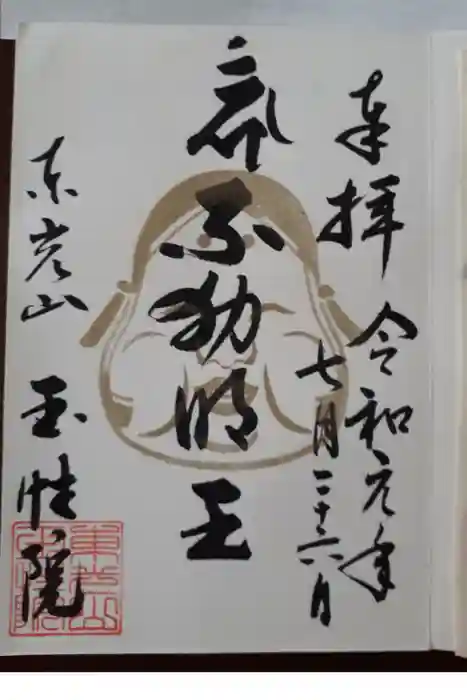 奉拝 令和元年
七月二十六日
不動明王
東光山 玉性院